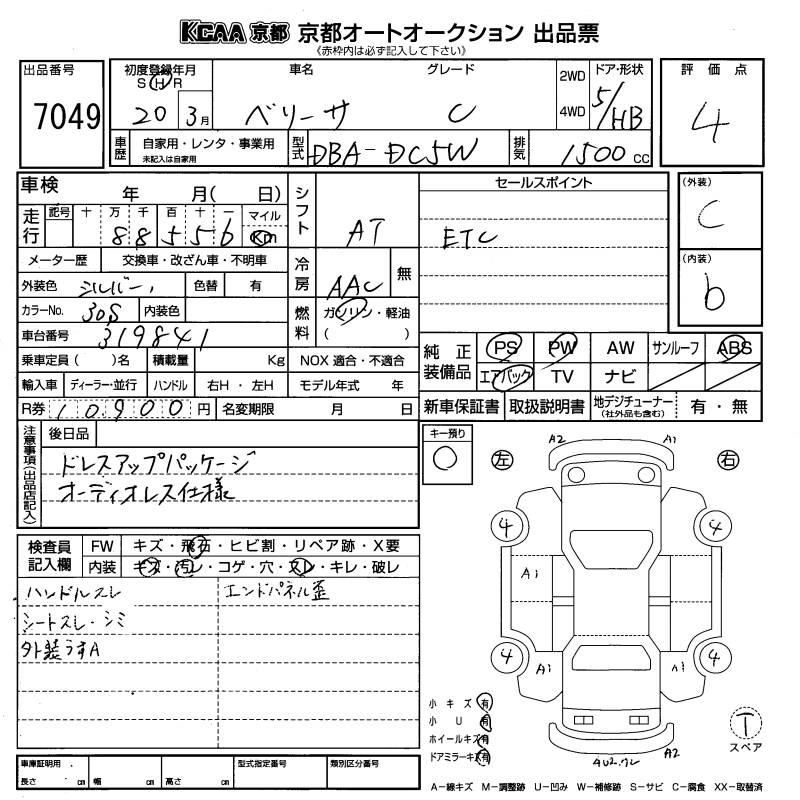 KCAA 京都 京都オートオークション 出品票
《赤枠内は必ず記入して下さい》
出品番号
7049
初度登録年月
S H R
20 3月
車名
ベリーサ
グレード
C
2WD
4WD
ドア・形状
5/HB
評価点
4
車歴
自家用・レンタ・事業用
未記入は自家用
型式
DBA-DC5W
排気
1500 cc
車検 年 月( 日)
走行
記号 十 万 千 百 十 一 マイル
88556 Km
メーター歴 交換車・改ざん車・不明車
外装色 シルバー 色替 有
カラーNo. 30S 内装色
車台番号 319841
乗車定員( )名 積載量 Kg NOX 適合・不適合
輸入車 ディーラー・並行 ハンドル 右H・左H モデル年式 年
R券 10900円 名変期限 月 日
シフト
AT
冷房
AAC 無
燃料
ガソリン・軽油
( )
セールスポイント
ETC
(外装)
C
(内装)
b
純正装備品
PS PW AW サンルーフ ABS
エアバック TV ナビ
新車保証書 取扱説明書 地デジチューナー(社外品も含む) 有・無
注意事項(出品店記入)
後日品
ドレスアップパッケージ
オーディオレス仕様
キー預り
検査員記入欄
FW キズ・飛石・ヒビ割・リペア跡・X要
内装 キズ・汚レ・コゲ・穴・スレ・キレ・破レ
ハンドルスレ
シートスレ・シミ
外装うすA
エンドパネル歪
左 右
A2 A1
4 4
A1
4 4
A1 A1
4U2.ワレ A2
小キズ 有
小U 有
ホイールキズ 有
ドアミラーキズ 有
T
スペア
車庫証明用
長さ cm 幅 cm 高さ cm
型式指定番号
類別区分番号
A−線キズ M−調整跡 U−凹み W−補修跡 S−サビ C−腐食 XX−取替済